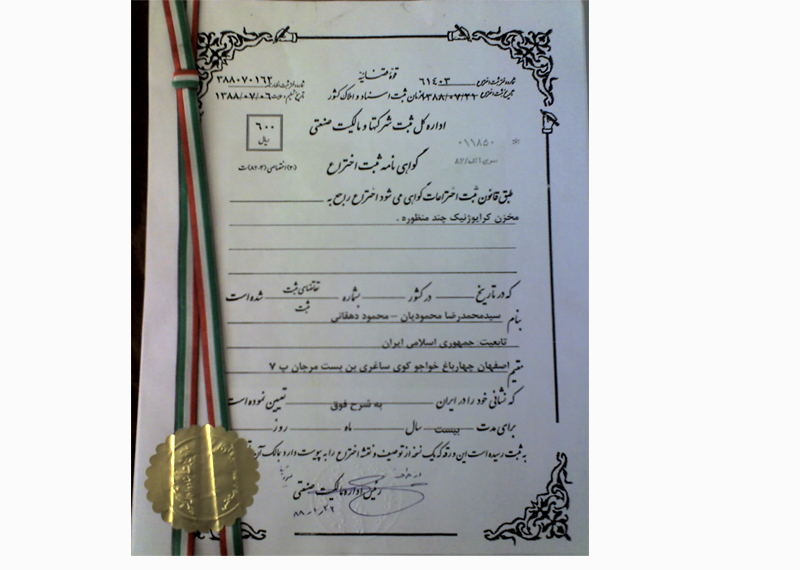 قوه قضائیه
شماره دفتر ثبت اختراع ۶۱۴۰۳
تاریخ ثبت اختراع ۱۳۸۸/۰۷/۲۲
سازمان ثبت اسناد و املاک کشور
شماره دفتر ثبت اظهارنامه ۳۸۸۰۷۰۱۶۲
تاریخ تسلیم ۱۳۸۸/۰۷/۰۶
اداره کل ثبت شرکتها و مالکیت صنعتی
۶۰۰
ریال
۰۹۶۸۵۰
سری الف/۸۷
گواهی نامه ثبت اختراع
طبق قانون ثبت اختراعات گواهی می شود اختراع راجع به
مخزن کرایوژنیک چند منظوره .
که در تاریخ در کشور بشماره تقاضای ثبت شده است
ثبت
بنام سیدمحمدرضا محمودیان – محمود دهقانی
تابعیت: جمهوری اسلامی ایران
مقیم اصفهان چهارباغ خواجو کوی ساغری بن بست مرجان پ ۷
که نشانی خود را در ایران به شرح فوق تعیین نموده است
برای مدت بیست سال ماه روز
به ثبت رسیده است این ورقه که یک نسخه از توصیف و نقشه اختراع را به پیوست دارد بمالک آن
رئیس اداره مالکیت صنعتی